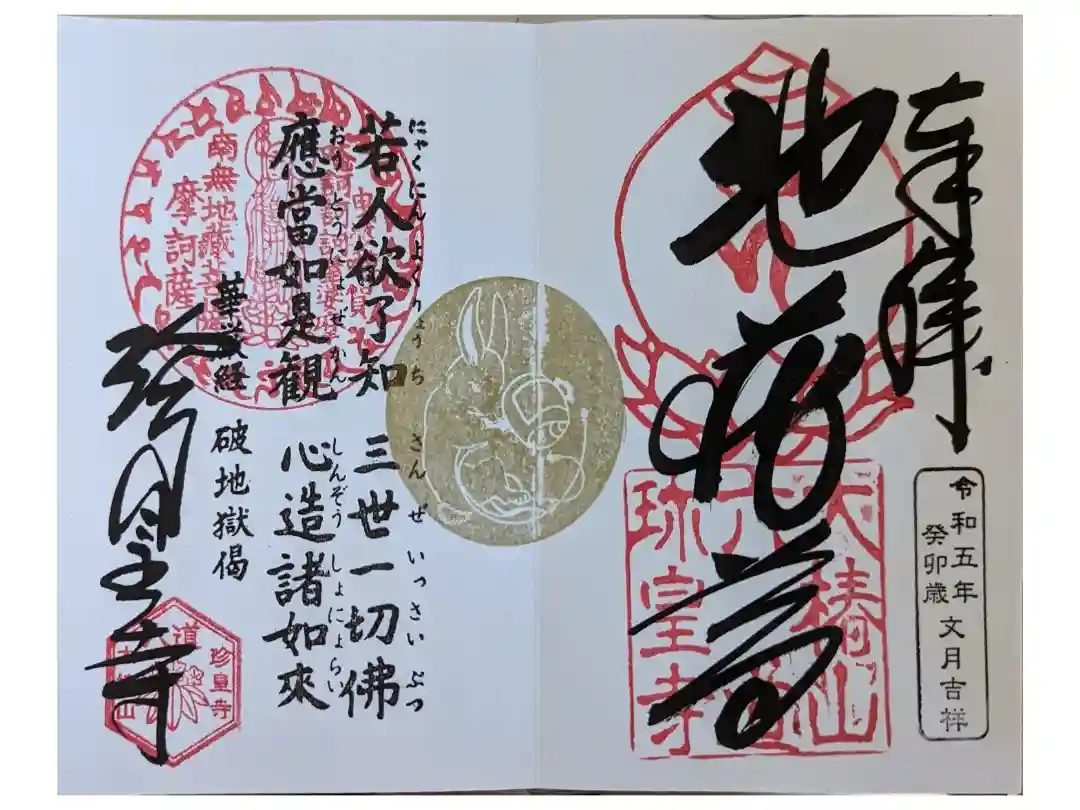 奉拝
地蔵尊
大椿山
六道
珎皇寺
令和五年
癸卯歳
文月吉祥
にゃくにんよくりょうち さんぜ いっさいぶつ
若人欲了知 三世一切佛
おうとうにょぜかん しんぞう しょにょらい
應當如是観 心造諸如來
華厳経 破地獄偈
南無地藏菩薩
摩訶薩
珍皇寺
道
珍皇寺